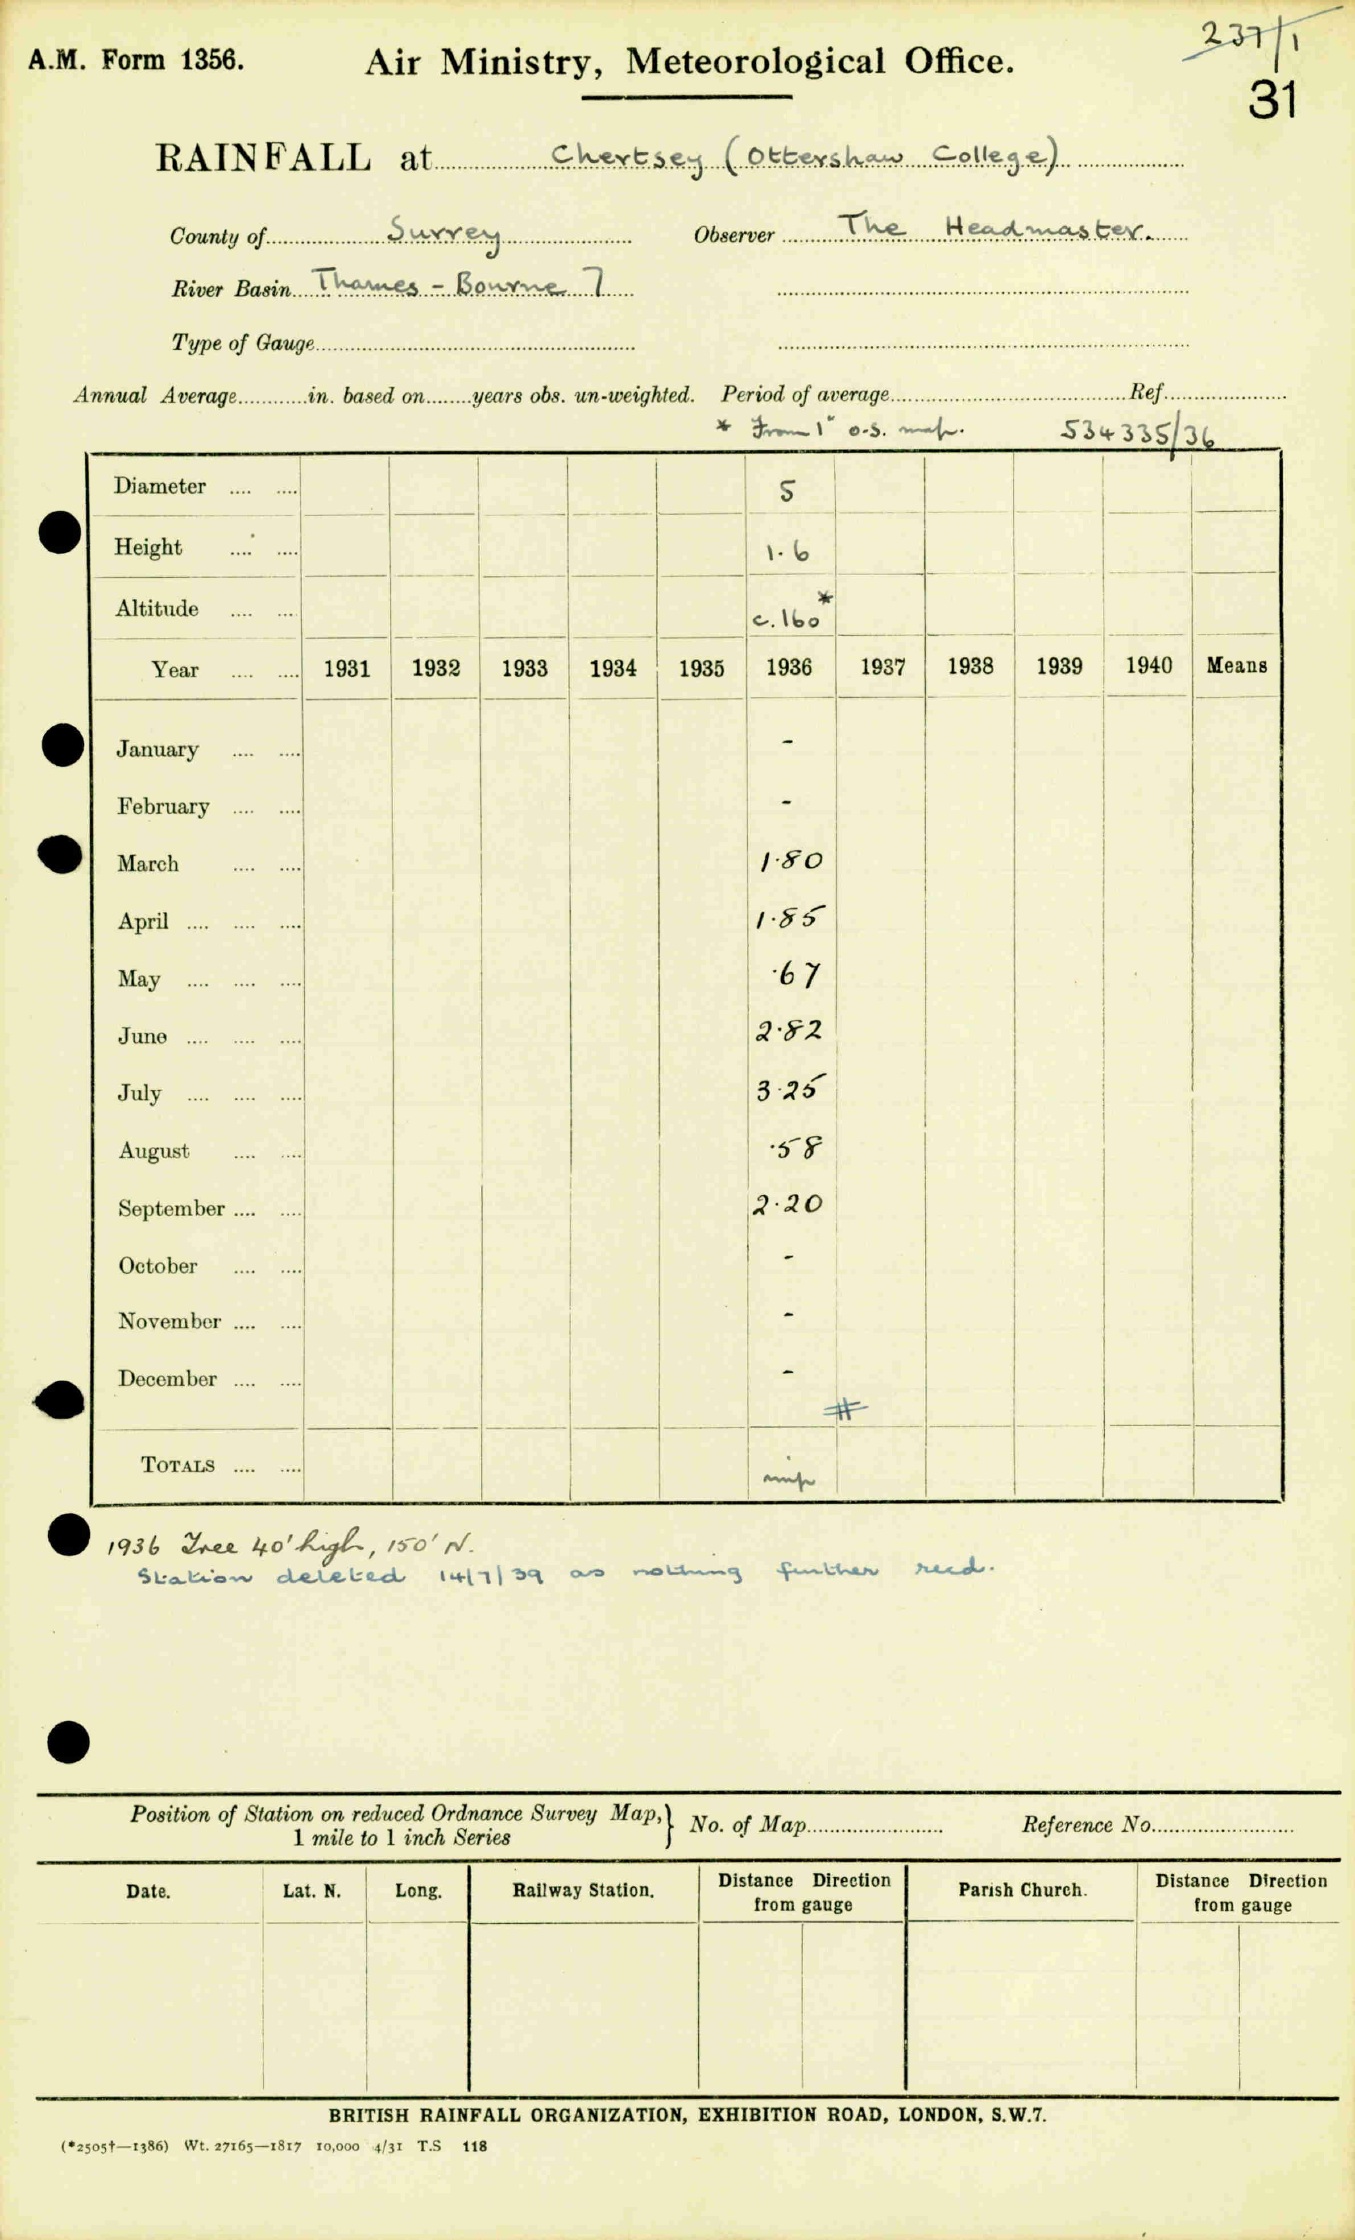 237/1
A.M. Form 1356.
Air Ministry, Meteorological Office.
31
RAINFALL at Chertsey (Ottershaw College)
County of Surrey Observer The Headmaster.
River Basin Thames - Bourne 7
Type of Gauge
Annual Average in. based on years obs. un-weighted. Period of average Ref.
* From 1" O.S. map. 534335/36
Diameter 5
Height 1.6
Altitude c.160 *
Year 1931 1932 1933 1934 1935 1936 1937 1938 1939 1940 Means
January -
February -
March 1.80
April 1.85
May .67
June 2.82
July 3.25
August .58
September 2.20
October -
November -
December -
#
TOTALS
1936 Tree 40' high, 150' N.
Station deleted 14/7/39 as nothing further recd.
Position of Station on reduced Ordnance Survey Map, } No. of Map Reference No.
1 mile to 1 inch Series
Date. Lat. N. Long. Railway Station. Distance Direction from gauge Parish Church. Distance Direction from gauge
BRITISH RAINFALL ORGANIZATION, EXHIBITION ROAD, LONDON, S.W.7.
(*2505†—1386) Wt. 27165—1817 10,000 4/31 T.S 118